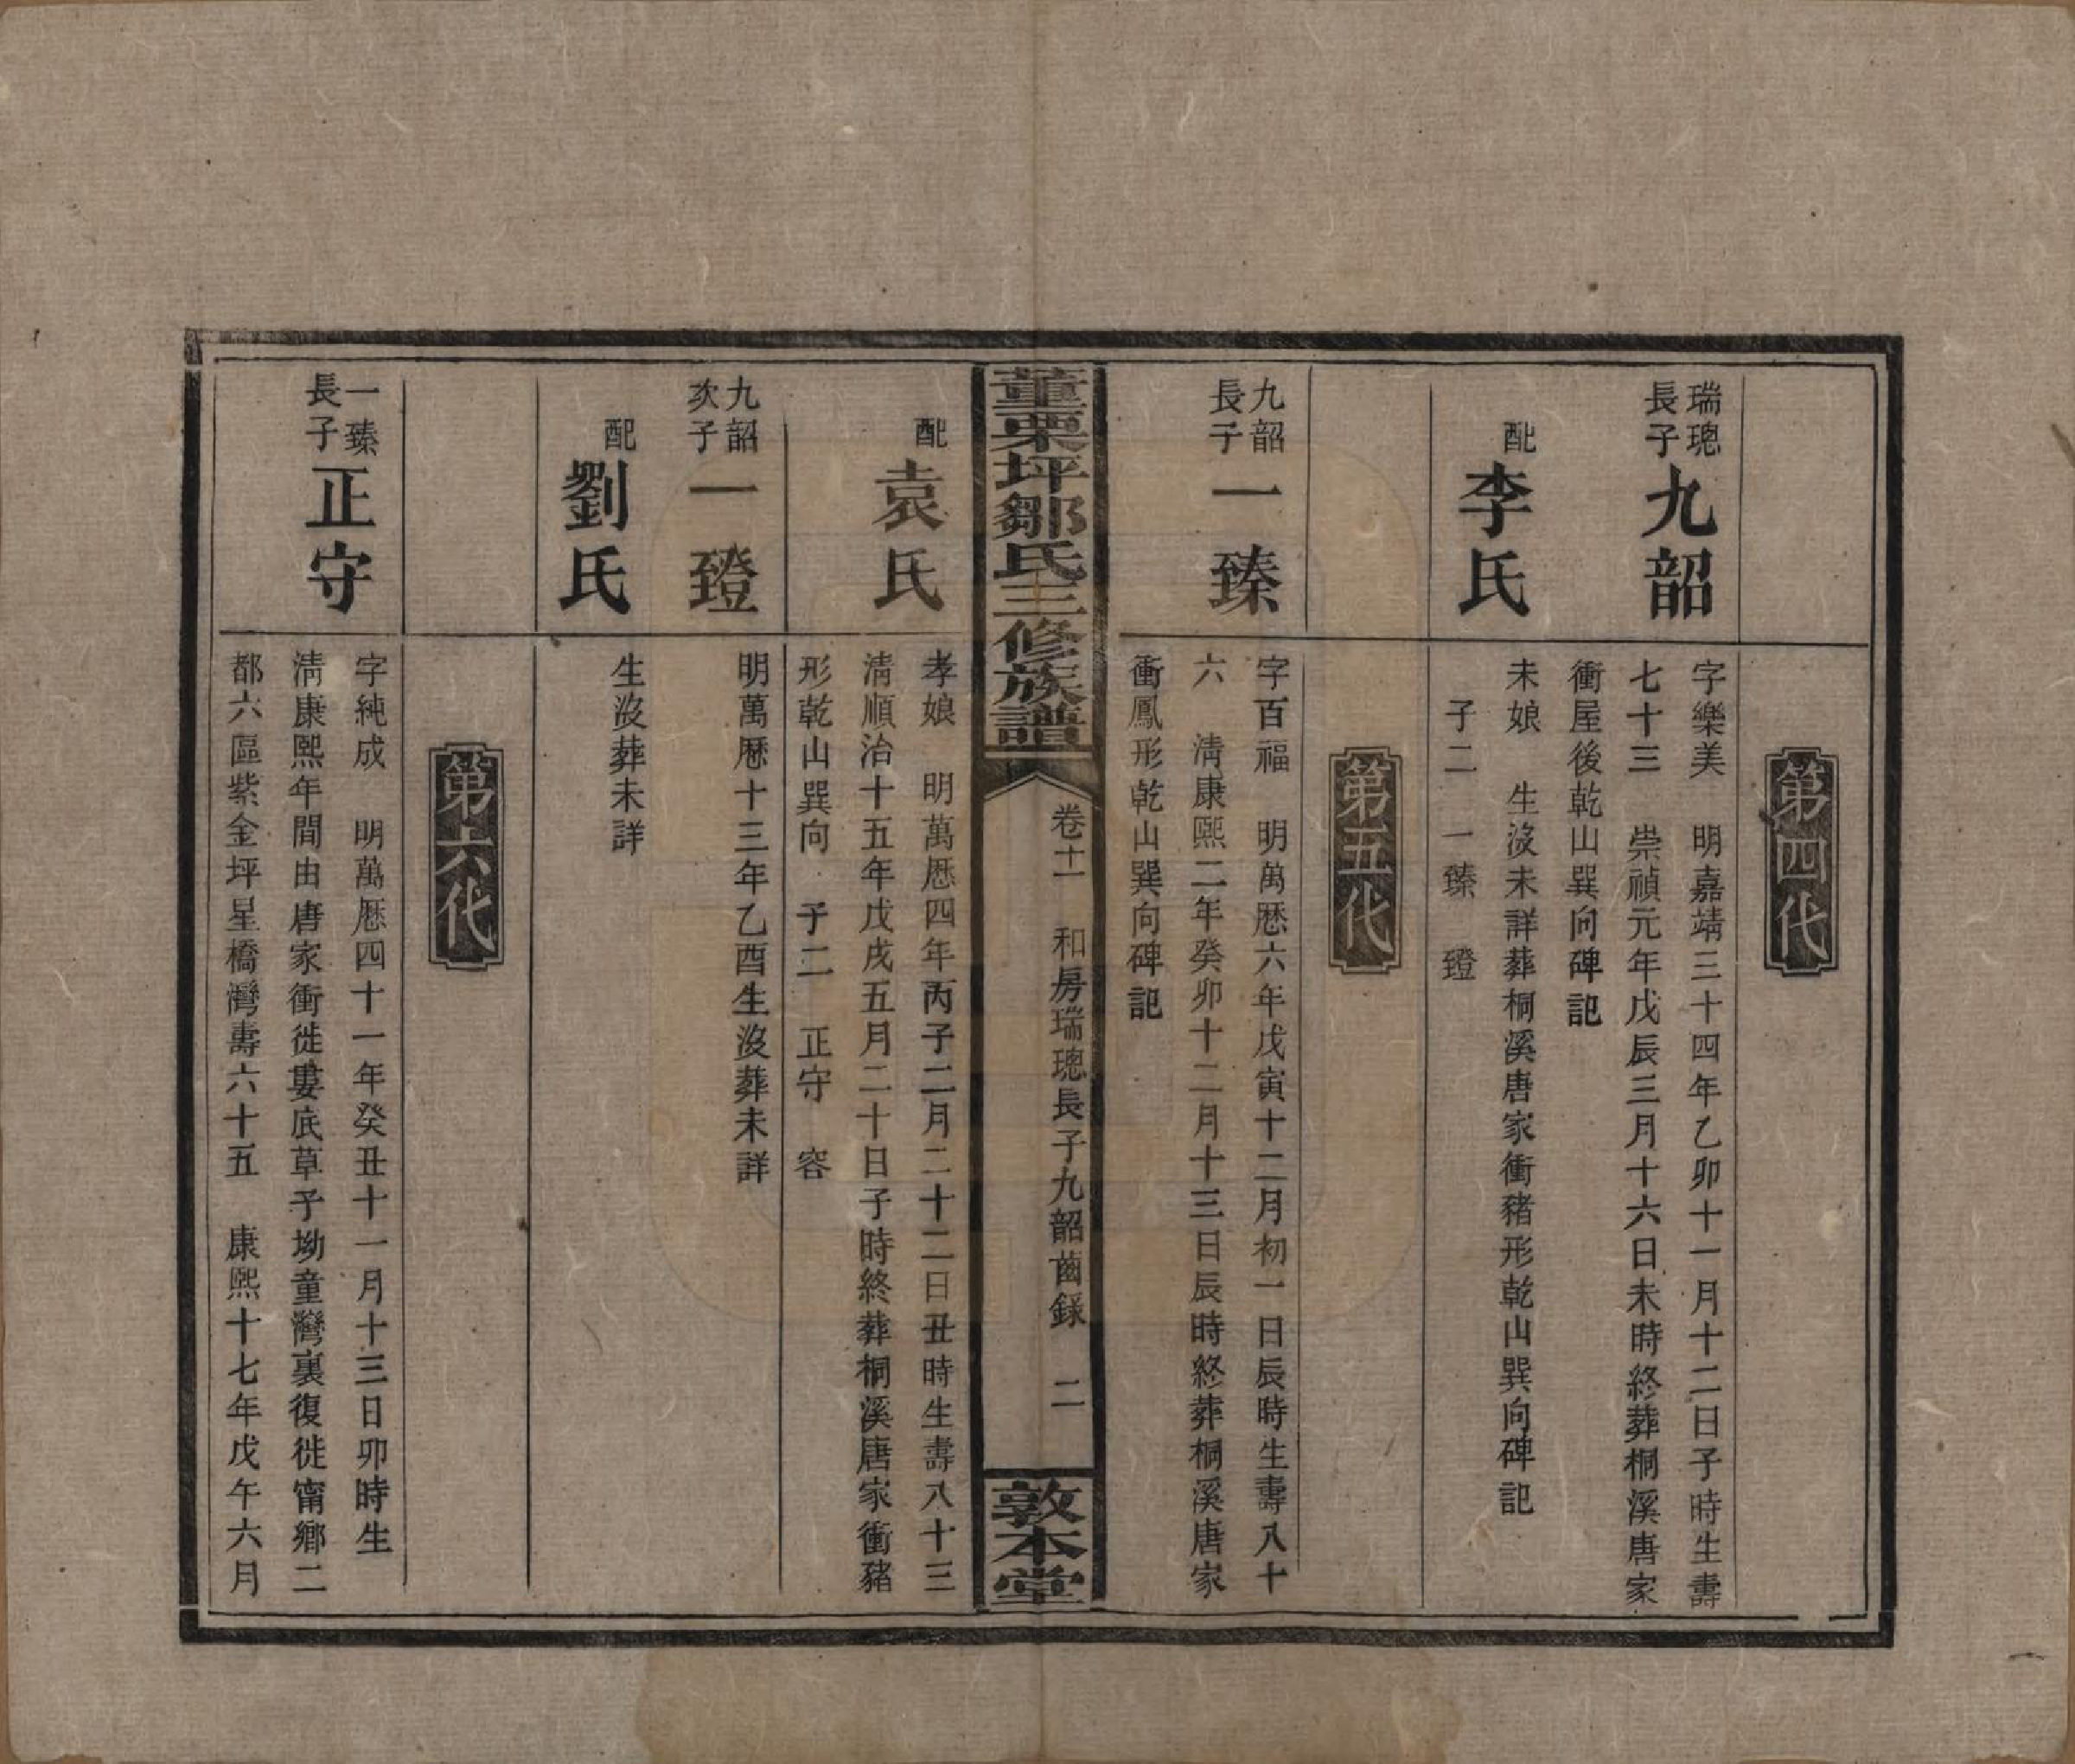 第四代
瑞璁
長子
九韶
字樂美　明嘉靖三十四年乙卯十一月十二日子時生壽
七十三　崇禎元年戊辰三月十六日未時終葬桐溪唐家
衝屋後乾山巽向碑記
配
李氏
未娘　生沒未詳葬桐溪唐家衝豬形乾山巽向碑記
子二　一臻　璒
第五代
九韶
長子
一臻
字百福　明萬厯六年戊寅十二月初一日辰時生壽八十
六　淸康熙二年癸卯十二月十三日辰時終葬桐溪唐家
衝鳳形乾山巽向碑記
董栗坪鄒氏三修族譜
卷十一　和房瑞璁長子九韶齒錄　二
敦本堂
配
袁氏
孝娘　明萬厯四年丙子二月二十二日丑時生壽八十三
淸順治十五年戊戌五月二十日子時終葬桐溪唐家衝豬
形乾山巽向　子二　正守　容
九韶
次子
一璒
明萬厯十三年乙酉生沒葬未詳
配
劉氏
生沒葬未詳
第六代
一臻
長子
正守
字純成　明萬厯四十一年癸丑十一月十三日卯時生
淸康熙年間由唐家衝徙婁底草子坳童灣裏復徙甯鄉二
都六區紫金坪星橋灣壽六十五　康熙十七年戊午六月